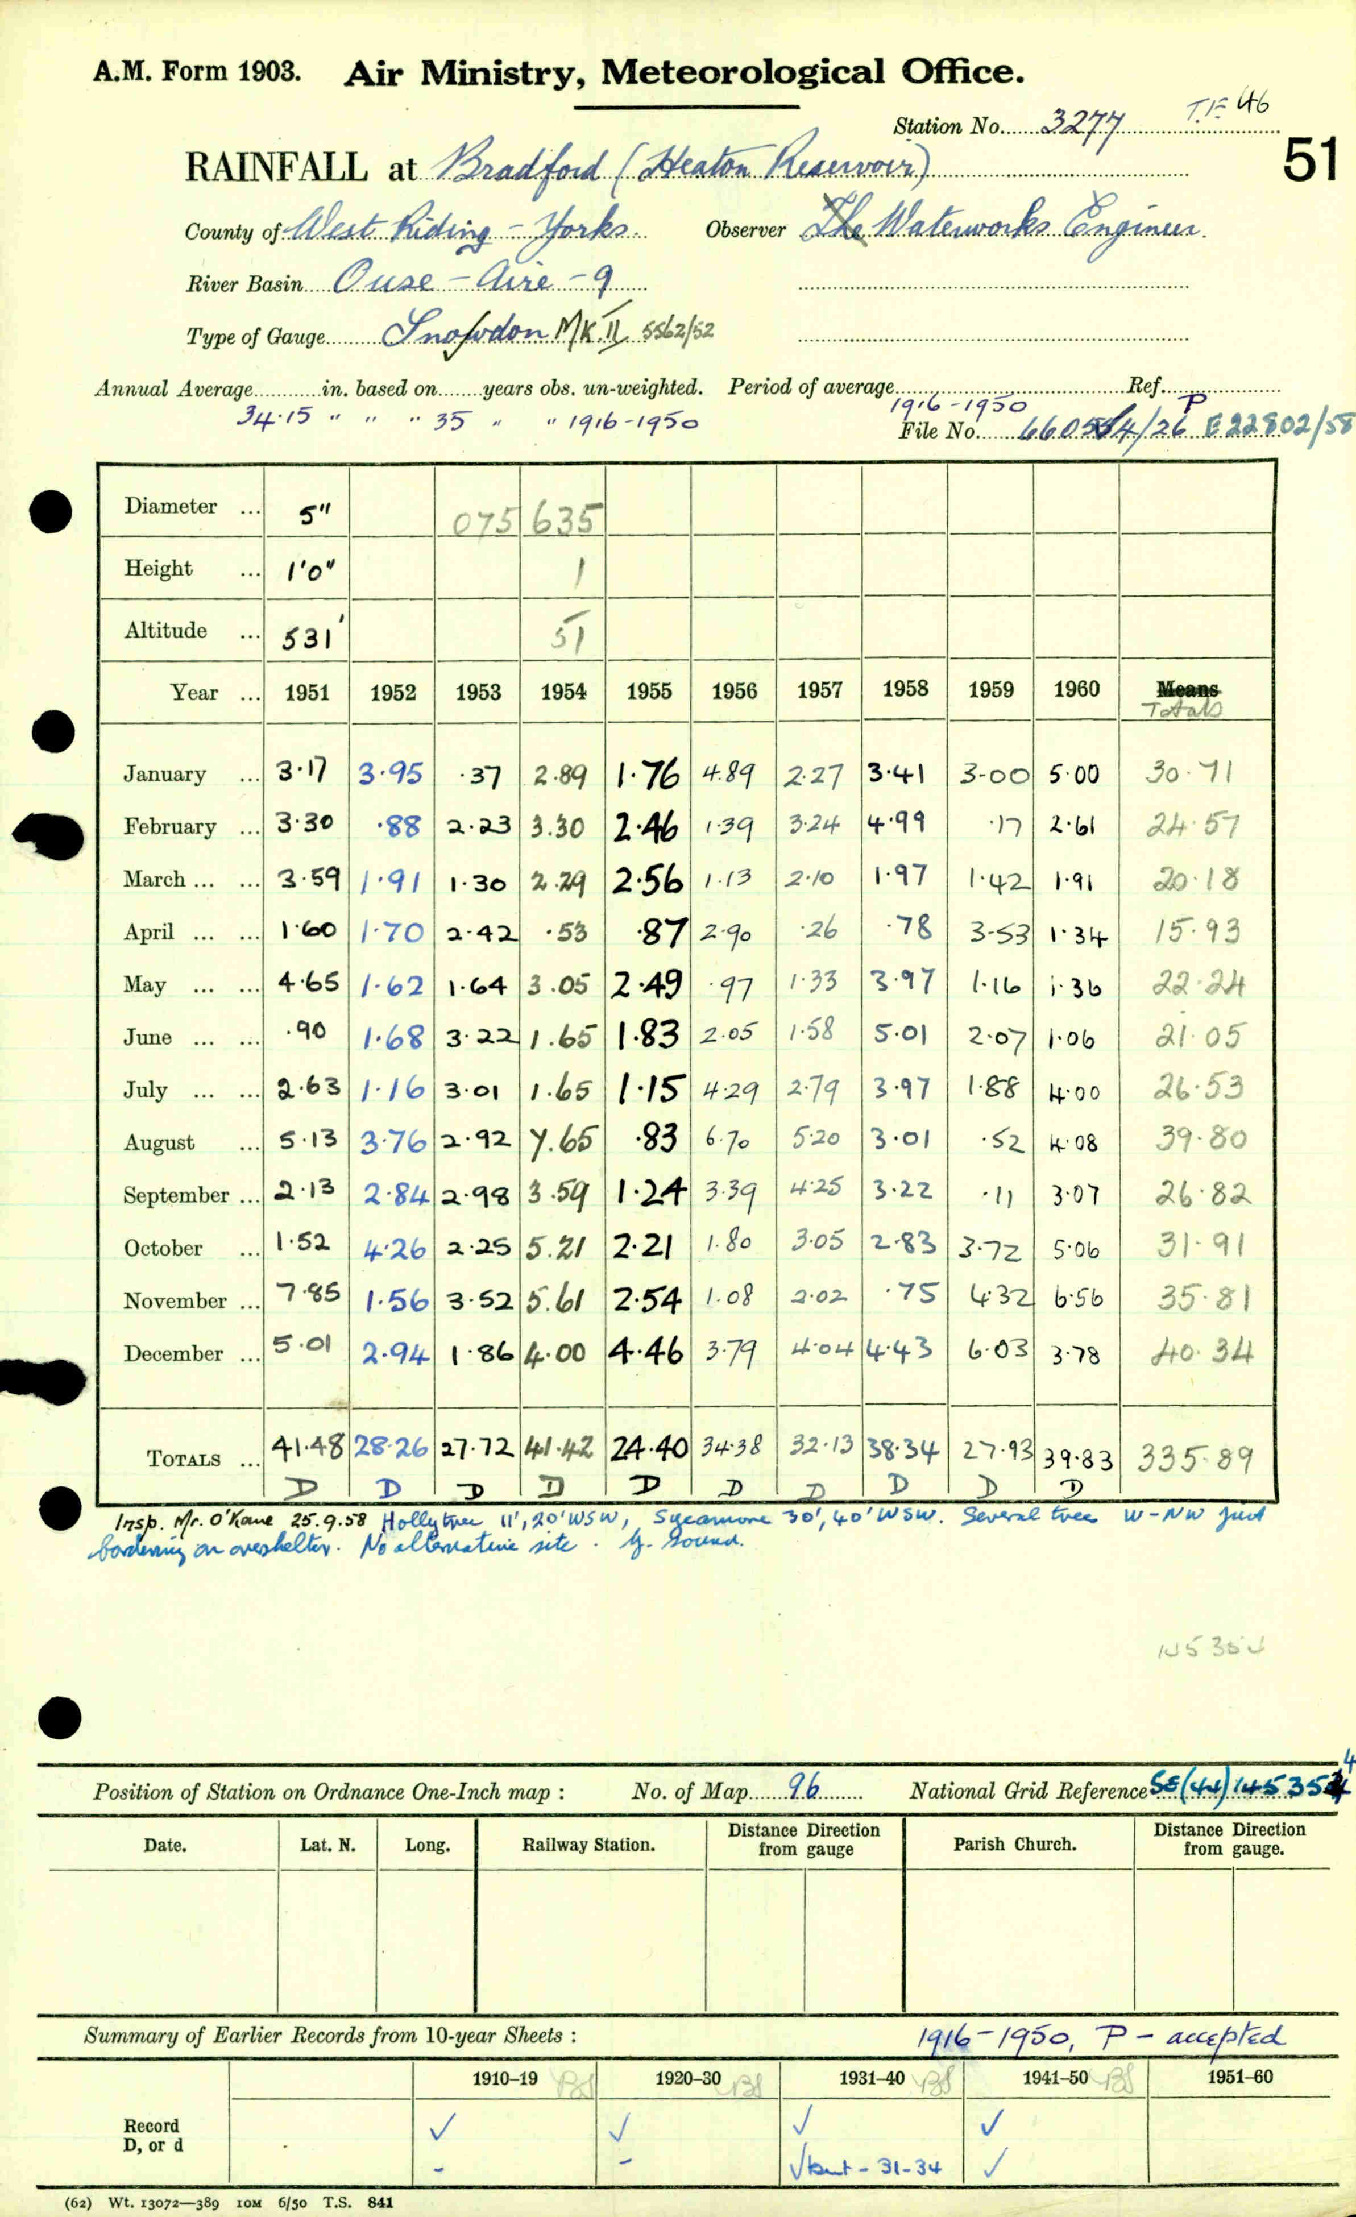 A.M. Form 1903. Air Ministry, Meteorological Office.
Station No. 3277 T.F. 46
51
RAINFALL at Bradford (Heaton Reservoir)
County of West Riding - Yorks. Observer The Waterworks Engineer
River Basin Ouse - Aire - 9
Type of Gauge Snowdon MK II 5562/52
Annual Average in. based on years obs. un-weighted. Period of average 1916-1950 Ref. P
34.15 " " " 35 " " 1916-1950
File No. /26 E22802/58
Diameter ... 5" 075 635
Height ... 1'0" 1
Altitude ... 531' 51
Year ... 1951 1952 1953 1954 1955 1956 1957 1958 1959 1960 Means Totals
January ... 3.17 3.95 .37 2.89 1.76 4.89 2.27 3.41 3.00 5.00 30.71
February ... 3.30 .88 2.23 3.30 2.46 1.39 3.24 4.99 .17 2.61 24.57
March ... ... 3.59 1.91 1.30 2.29 2.56 1.13 2.10 1.97 1.42 1.91 20.18
April ... ... 1.60 1.70 2.42 .53 .87 2.90 .26 .78 3.53 1.34 15.93
May ... ... 4.65 1.62 1.64 3.05 2.49 .97 1.33 3.97 1.16 1.36 22.24
June ... ... .90 1.68 3.22 1.65 1.83 2.05 1.58 5.01 2.07 1.06 21.05
July ... ... 2.63 1.16 3.01 1.65 1.15 4.29 2.79 3.97 1.88 4.00 26.53
August ... 5.13 3.76 2.92 7.65 .83 6.70 5.20 3.01 .52 4.08 39.80
September ... 2.13 2.84 2.98 3.59 1.24 3.39 4.25 3.22 .11 3.07 26.82
October ... 1.52 4.26 2.25 5.21 2.21 1.80 3.05 2.83 3.72 5.06 31.91
November ... 7.85 1.56 3.52 5.61 2.54 1.08 2.02 .75 4.32 6.56 35.81
December ... 5.01 2.94 1.86 4.00 4.46 3.79 4.04 4.43 6.03 3.78 40.34
TOTALS ... 41.48 28.26 27.72 41.42 24.40 34.38 32.13 38.34 27.93 39.83 335.89
D D D D D D D D D D
Insp. Mr. O'Kane 25.9.58 Holly tree 11', 20' WSW, Sycamore 30', 40' WSW. Several trees W-NW just
bordering on overshelter. No alternative site. G. Sound.
Position of Station on Ordnance One-Inch map : No. of Map 96 National Grid Reference SE(44)145354
Date. Lat. N. Long. Railway Station. Distance from Direction gauge Parish Church. Distance from Direction gauge.
Summary of Earlier Records from 10-year Sheets : 1916-1950, P - accepted
1910–19 1920–30 1931–40 1941–50 1951–60
Record ✓ ✓ ✓ ✓
D, or d - - ✓ but - 31-34 ✓
(62) Wt. 13072—389 10M 6/50 T.S. 841